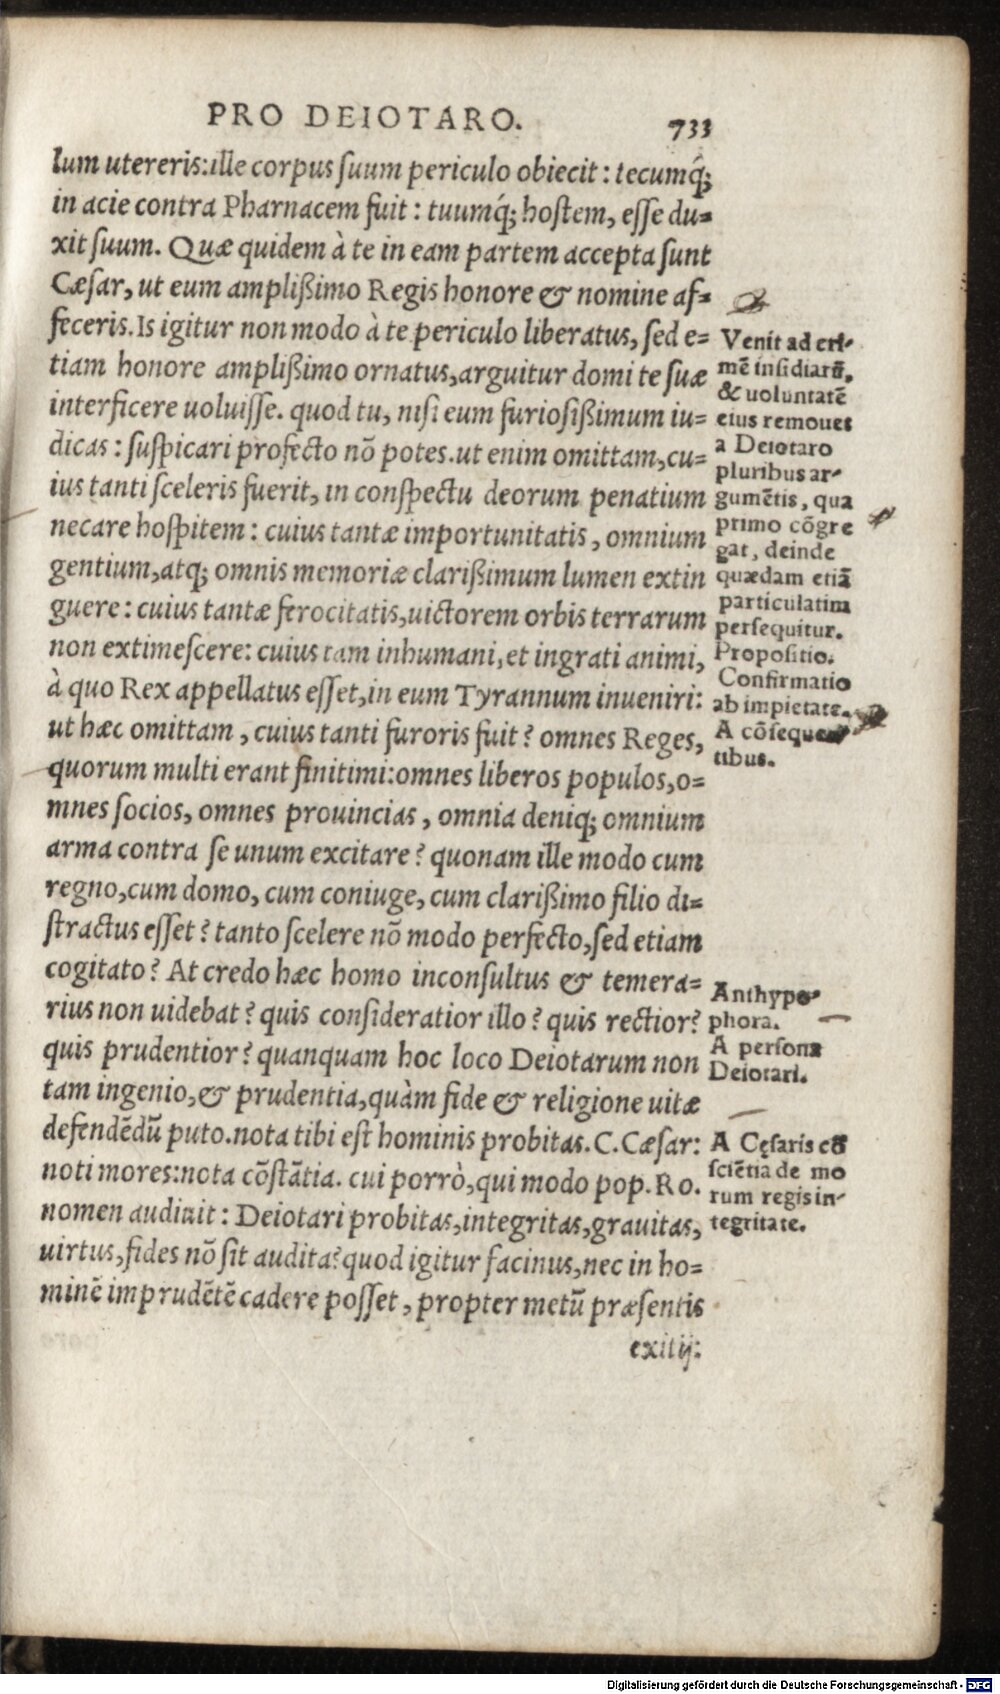 PRO DEIOTARO. 733
lum utereris: ille corpus ſuum periculo obiecit : tecumq́;
in acie contra Pharnacem fuit : tuumq́; hoſtem, eſſe du=
xit ſuum. Quæ quidem à te in eam partem accepta ſunt
Cæſar, ut eum ampliſsimo Regis honore & nomine af=
feceris. Is igitur non modo à te periculo liberatus, ſed e=
tiam honore ampliſsimo ornatus, arguitur domi te ſuæ
interficere uoluiſſe. quod tu, niſi eum furioſiſsimum iu=
dicas : ſuſpicari profecto nõ potes. ut enim omittam, cu=
ius tanti ſceleris fuerit, in conſpectu deorum penatium
necare hoſpitem : cuius tantæ importunitatis, omnium
gentium, atq; omnis memoriæ clariſsimum lumen extin
guere : cuius tantæ ferocitatis, uictorem orbis terrarum
non extimeſcere: cuius tam inhumani, et ingrati animi,
à quo Rex appellatus eſſet, in eum Tyrannum inueniri:
ut hæc omittam, cuius tanti furoris fuit? omnes Reges,
quorum multi erant finitimi: omnes liberos populos, o=
mnes ſocios, omnes prouincias, omnia deniq; omnium
arma contra ſe unum excitare? quonam ille modo cum
regno, cum domo, cum coniuge, cum clariſsimo filio di=
ſtractus eſſet? tanto ſcelere nõ modo perfecto, ſed etiam
cogitato? At credo hæc homo inconſultus & temera=
rius non uidebat? quis conſideratior illo? quis rectior?
quis prudentior? quanquam hoc loco Deiotarum non
tam ingenio, & prudentia, quàm fide & religione uitæ
defendẽdũ puto. nota tibi eſt hominis probitas. C. Cæſar:
noti mores: nota cõſtãtia. cui porrò, qui modo pop. Ro.
nomen audiuit : Deiotari probitas, integritas, grauitas,
uirtus, fides nõ ſit audita? quod igitur facinus, nec in ho=
minẽ imprudẽtẽ cadere poſſet, propter metũ præſentis
exitij:
Venit ad cri-
mẽ inſidiarũ,
& uoluntatẽ
eius remouet
a Deiotaro
pluribus ar-
gumẽtis, quæ
primo cõgre
gat, deinde
quædam etiã
particulatim
perſequitur.
Propoſitio.
Confirmatio
ab impietate.
A cõſequen
tibus.
Anthypo-
phora.
A perſona
Deiotari.
A Cęſaris cõ
ſciẽtia de mo
rum regis in-
tegritate.
Digitalisierung gefördert durch die Deutsche Forschungsgemeinschaft - DFG